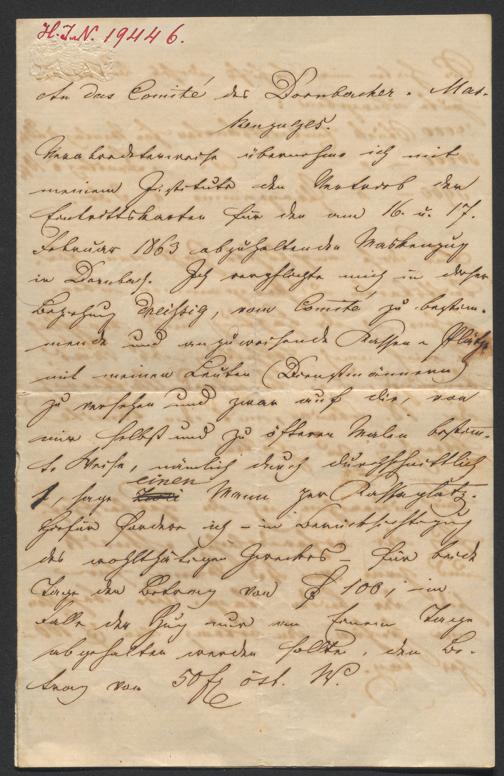 H.I.N. 19446.
An das Comité des Dornbacher-Mas-
kenzuges.
Verabredeterweise übernehme ich mit
meinem Institute den Vertrieb der
Eintrittskarten für den am 16. u. 17.
Februar 1863 abzuhaltenden Maskenzug
in Dornbach. Ich verpflichte mich in dieser
Beziehung dreissig, vom Comité zu bestim-
mende und anzuweisende Kassen-Plätze
mit meinen Leuten (Dienstmännern)
zu versehen und zwar auf die, von
mir selbst und zu öfteren Malen bestim-
te Weise, nämlich durch durchschnittlich
1, sage einen Mann per Kassaplatz.
Hiefür fordere ich – in Berücksichtigung
des wohlthätigen Zweckes – für beide
Tage den Betrag von f 100; im
Falle der Zug nur an Einem Tage
abgehalten werden sollte, den Be-
trag von 50 fl öst. W.